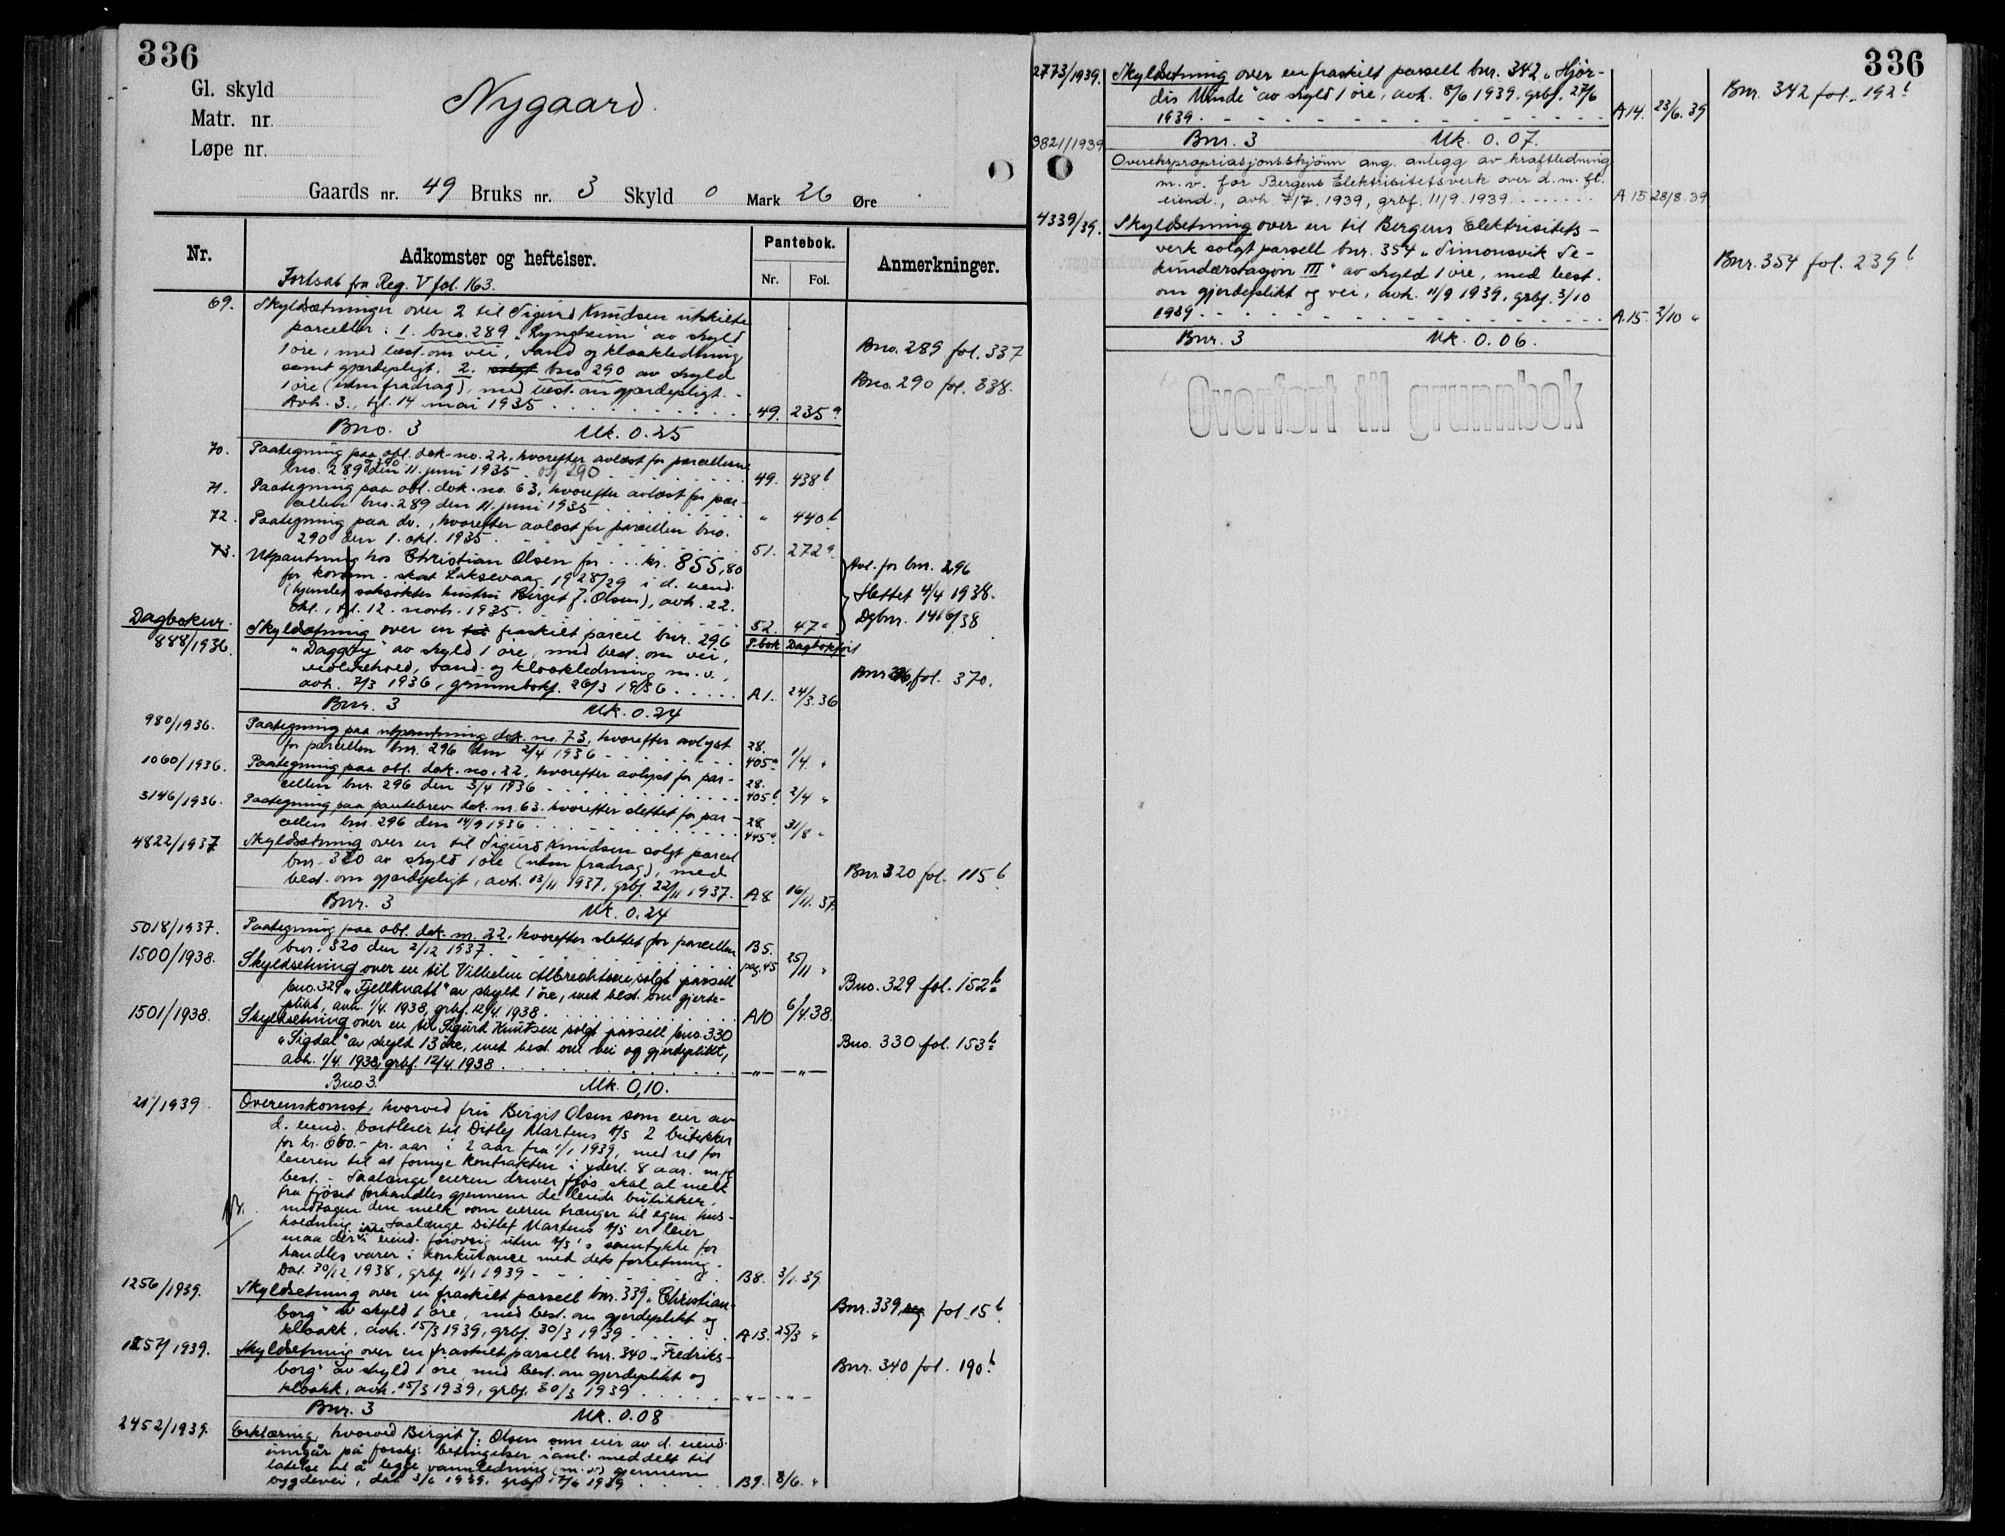 336
Gl. skyld
Matr. nr.
Løpe nr.
Nygaard.
Gaards nr. 49 Bruks nr. 3 Skyld 0 Mark 26 Øre
Nr.
Adkomster og heftelser.
Pantebok.
Nr. Fol.
Anmerkninger.
Fortsat fra Reg. V fol. 163.
69. Skyldsætninger over 2 til Sigurd Knudsen utskilte
parceller: 1. bno. 289 "Lyngheim" av skyld
1 øre, med best. om vei, vand og kloakledning
samt gjærdepligt. 2. bno 290 av skyld
1 øre (uten fradrag), med best. om gjærdepligt. -
Avh. 3., tgl. 14 mai 1935 49. 235a
Bno. 289 fol. 337
Bno. 290 fol. 338.
Bno. 3 Mk. 0.25
70. Paategning paa obl. dok. no. 22, hvorefter avløst for parcellerne
bno. 289 og 290 den 11. juni 1935 49. 438b
71. Paategning paa obl. dok. no. 63, hvorefter avløst for par-
cellen bno. 289 den 11. juni 1935 " 440b
72. Paategning paa do., hvorefter avløst for parcellen bno.
290 den 1. okt. 1935. 51. 272a
73. Utpantning hos Christian Olsen for kr. 855,80
for komm. skat Laksevaag 1928/29 i d. eiend.
(hjemlet saksøktes hustru Birgit J. Olsen), avh. 22.
okt., tgl. 12. novb. 1935. 52. 47a
Avl. for bnr. 296
Slettet 4/4 1938.
Dgbnr. 1416/38
Dagboknr. P.bok Dagbokført
888/1936. Skyldsætning over en fraskilt parcel bnr. 296
"Daggry" av skyld 1 øre, med best. om vei,
veivedlikehold, vand- og kloakledning m.v.,
avh. 7/3 1936, grunnbokf. 26/3 1936 A1. 24/3.36
Bnr 296, fol. 370.
Bnr. 3 Mk. 0.24
980/1936. Paategning paa utpantning dok. no. 73, hvorefter avlyst
for parcellen bnr. 296 den 2/4 1936 28. 405a 1/4. "
1060/1936. Paategning paa obl. dok. no. 22, hvorefter avlyst for par-
cellen bnr. 296 den 3/4 1936 28. 405b 2/4 "
3146/1936. Paategning paa pantebrev dok. nr. 63. hvorefter slettet for par-
cellen bnr. 296 den 14/9 1936 28. 445a 31/8 "
4822/1937 Skyldsætning over en til Sigurd Knudsen solgt parcel
bnr. 320 av skyld 1 øre (uten fradrag), med
best. om gjærdepligt, avh. 13/11 1937, grbf. 22/11 1937. A8 16/11. 37.
Bnr. 320 fol. 115b
Bnr. 3 Mk. 0.24
5018/1937. Paategning paa obl. dok. nr. 22, hvorefter slettet for parcellen
bnr. 320 den 2/12 1937. B5. pag. 45 25/11 "
1500/1938. Skyldsetning over en til Vilhelm Albrechtsen solgt parsell
bno. 329 "Fjellknatt" av skyld 1 øre, med best. om gjerde-
plikt, avh. 1/4. 1938, grbf. 12/4 1938 A10 6/4.38.
Bno. 329 fol. 152b
1501/1938. Skyldsetning over en til Sigurd Knutsen solgt parsell bno. 330
"Sigdal" av skyld 13 øre, med best. om vei og gjerdeplikt,
avh. 1/4. 1938, grbf. 12/4 1938 —"— —"—
Bno. 330 fol. 153b
Bno 3. Mk. 0,10.
21/1939. Overenskomst, hvorved fru Birgit Olsen som eier av
d. eiend. bortleier til Ditlef Martens A/S 2 butikker
for kr. 660.- pr. aar i 2 aar fra 1/1 1939, med ret for
leieren til at fornye kontrakten i yderl. 8 aar. m. fl.
best. - Saalænge eieren driver fjøs skal al melk
fra fjøset forhandles gjennem de leiede butikker,
undtagen den melk som eieren trænger til egen hus-
holdning. Saalænge Ditlef Martens A/S er leier
maa der ikke i eiend. forøvrig uten A/S's samtykke for-
handles varer i konkurrance med dets forretning.
Dat. 30/12 1938, grbf. 11/1 1939 B8. 3/1. 39.
1256/1939. Skyldsetning over en fraskilt parsell bnr. 339 "Christian-
borg" av skyld 1 øre, med best. om gjerdeplikt og
kloakk, avh. 15/3 1939, grbf. 30/3 1939 A13. 25/3 "
Bnr. 339, fol. 15b
1257/1939. Skyldsetning over en fraskilt parsell bnr. 340 "Fredriks-
borg" av skyld 1 øre, med best. om gjerdeplikt og
kloakk, avh. 15/3 1939, grbf. 30/3 1939 -"- -"-
Bnr. 340 fol. 190b
Bnr. 3 Mk. 0.08
2452/1939. Erklæring, hvorved Birgit J. Olsen som eier av d. eiend.
inngår på forskj. betingelser i anl. meddelt til-
latelse til å legge vannledning (m.v.) gjennem
bygdevei, dat. 3/6 1939, grbf 17/6 1939 B9. 8/6. "
336
2773/1939. Skyldsetning over en fraskilt parsell bnr. 342 "Hjør-
dis Minde" av skyld 1 øre, avh. 8/6 1939, grbf. 27/6
1939. A14. 23/6. 39
Bnr. 342 fol. 192b
Bnr. 3 Mk. 0.07.
3821/1939 Overekspropriasjonsskjønn ang. anlegg av kraftledning
m.v. for Bergens Elektrisitetsverk over d. m. fl.
eiend., avh. 7/7. 1939, grbf. 11/9. 1939 A 15 28/8. 39
4339/39. Skyldsetning over en til Bergens Elektrisitets-
verk solgt parsell bnr. 354 "Simonsvik Se-
kundærstasjon III" av skyld 1 øre, med best.
om gjerdeplikt og vei, avh. 11/9 1939, grbf. 3/10
1939 A.15. 2/10 "
Bnr. 354 fol. 239b
Bnr. 3 Mk. 0.06.
Overført til grunnbok